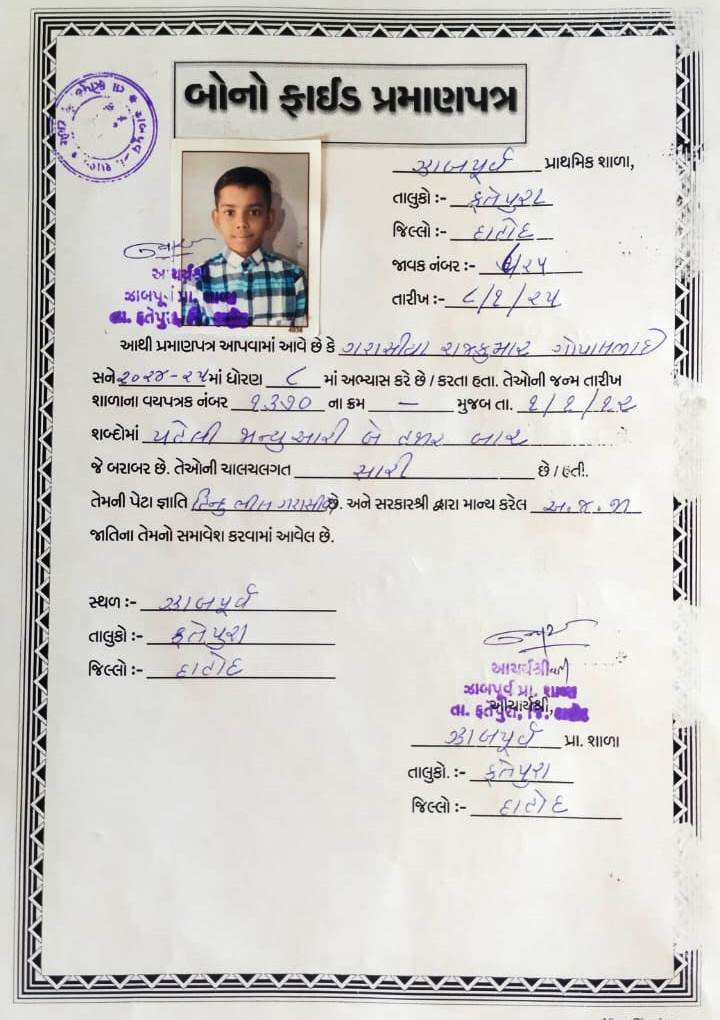 બોનો ફાઈડ પ્રમાણપત્ર
ઝાબપૂર્વ પ્રાથમિક શાળા,
તાલુકો :- ફતેપુરા
જિલ્લો :- દાહોદ
જાવક નંબર :- /૨૫
તારીખ :- ૮/૧/૨૫
આચાર્યશ્રી
ઝાબપૂર્વ પ્રા. શાળા
તા. ફતેપુરા, જિ. દાહોદ
આથી પ્રમાણપત્ર આપવામાં આવે છે કે ગરાસીયા રાજકુમાર ગોપાલભાઈ
સને ૨૦૨૪-૨૫ માં ધોરણ ૮ માં અભ્યાસ કરે છે / કરતા હતા. તેઓની જન્મ તારીખ
શાળાના વયપત્રક નંબર ૧૩૭૦ ના ક્રમ — મુજબ તા. ૧/૧/૧૨
શબ્દોમાં પહેલી જાન્યુઆરી બે હજાર બાર
જે બરાબર છે. તેઓની ચાલચલગત સારી છે / હતી.
તેમની પેટા જ્ઞાતિ હિન્દુ ભીલ ગરાસીયા છે. અને સરકારશ્રી દ્વારા માન્ય કરેલ અ.જ.જા
જાતિના તેમનો સમાવેશ કરવામાં આવેલ છે.
સ્થળ :- ઝાબપૂર્વ
તાલુકો :- ફતેપુરા
જિલ્લો :- દાહોદ
આચાર્યશ્રી
ઝાબપૂર્વ પ્રા. શાળા
તા. ફતેપુરા, જિ. દાહોદ
આચાર્યશ્રી,
ઝાબપૂર્વ પ્રા. શાળા
તાલુકો. :- ફતેપુરા
જિલ્લો :- દાહોદ